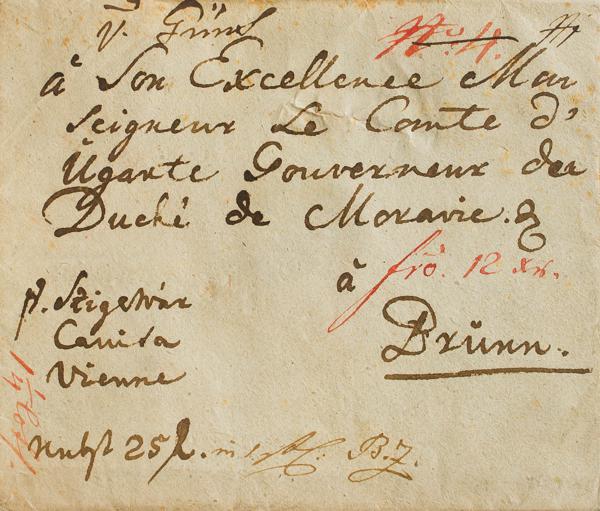 v. Güns No. 4.
à Son Excellence Mon
seigneur Le Comte d'
Ugarte Gouverneur du
Duché de Moravie. &
à fro. 12 xr.
Brünn.
p. Szigetvár
Canisa
Vienne
nebst 25 f. in